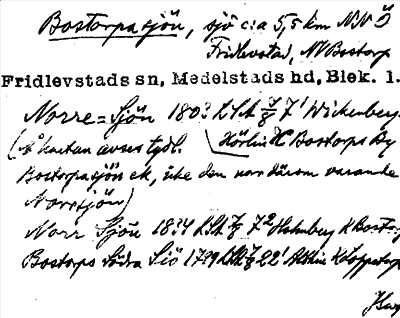 Bostorpasjön, sjö c:a 5,5 km NNÖ
Fridlevstad, NV Bostorp
Fridlevstads sn, Medelstads hd, Blek. l.
Norre=Sjön 1803 LSA 7' Wickenberg
(Å kartan avses tydl. Hörlin K Bostorps By
Bostorpasjön ek, icke den norr därom varande
Norrsjön)
Norr Sjön 1834 LSA 7² Holmberg K Bostorp
Bostorps Södra Siö 1779 LSA 22'